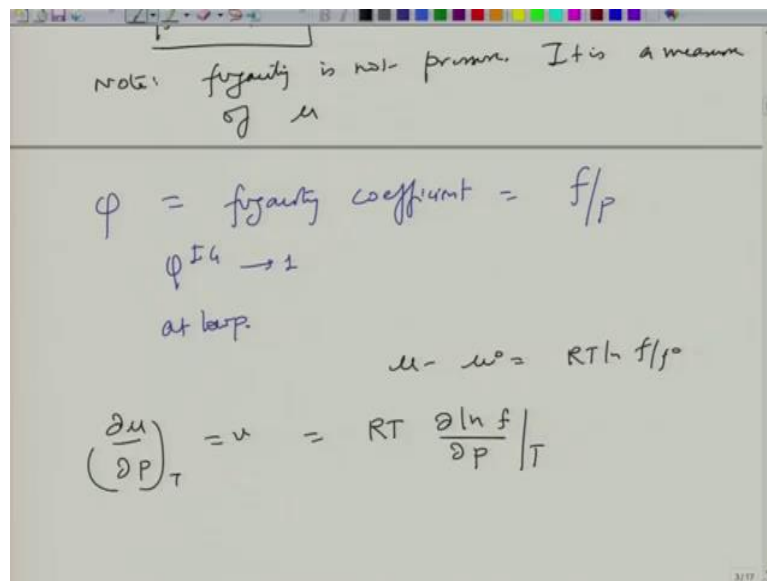 Note: fugacity is not pressure. It is a measure
of μ
φ = fugacity coefficient = f/p
φ^IG → 1
at low p.
μ - μ° = RT ln f/f°
(∂μ/∂P)_T = v = RT ∂ ln f/∂P |_T
3/17